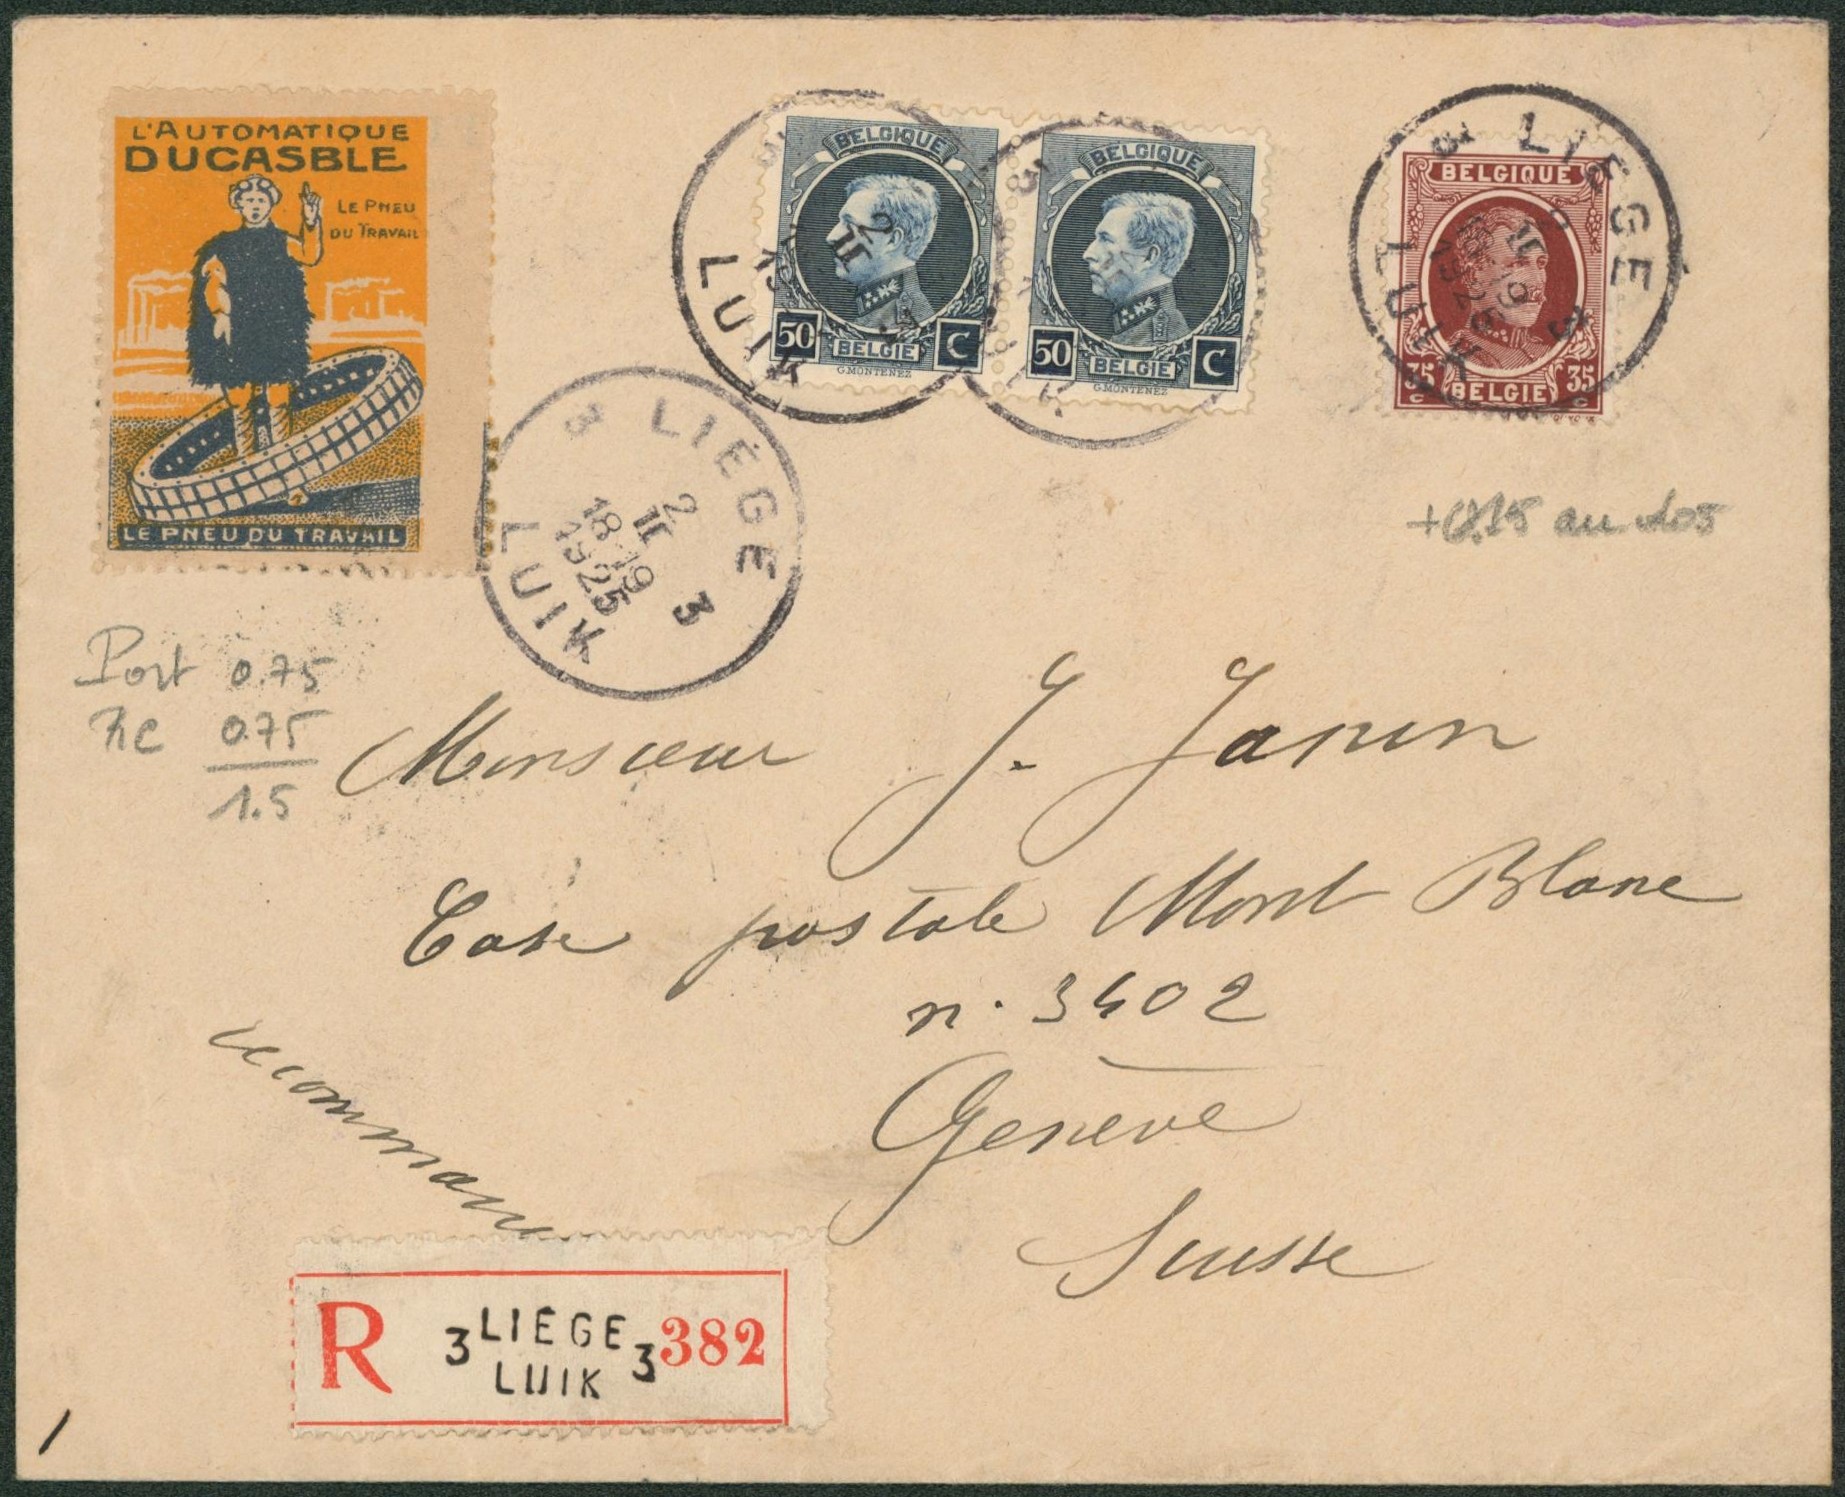 L'AUTOMATIQUE
DUCASBLE
LE PNEU
DU TRAVAIL
LE PNEU DU TRAVAIL
BELGIQUE
50 C
BELGIË
G.MONTENEZ
BELGIQUE
50 C
BELGIË
G.MONTENEZ
BELGIQUE
35 35
c c
BELGIE
LUIK
3 LIÉGE 3
2
II
18-19
1925
LUIK
3 LIEGE 3
LUIK
+0.15 au dos
Port 0.75
Rc 0.75
1.5
Monsieur J. Janin
Case postale Mont Blanc
n. 3402
Genève
Suisse
recommandé
R 3 LIÉGE 3 382
LUIK